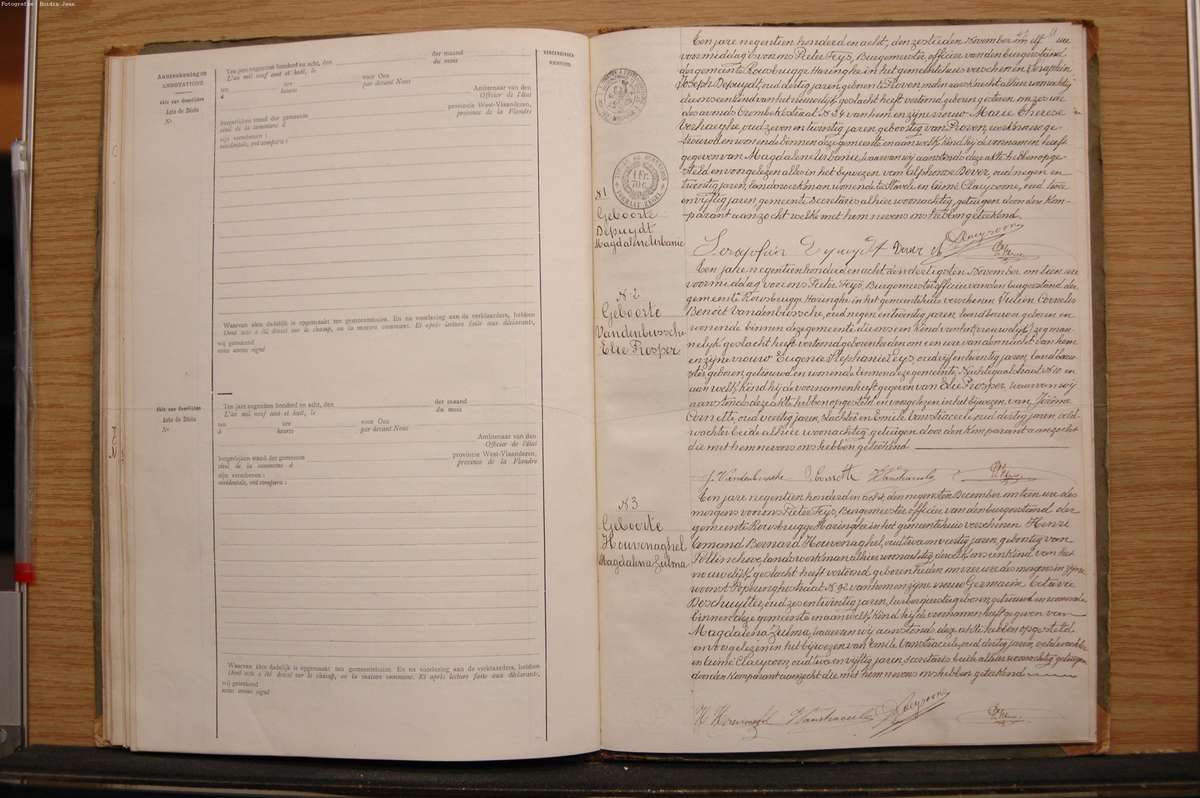 Fotografie: Boudin Jean
Aanteekeningen
ANNOTATIONS
Akte van Overlijden
Acte de Décès
Nr
Ten jare negentien honderd en acht, den der maand
L'an mil neuf cent et huit, le du mois
ten ure voor Ons Ambtenaar van den
à heures par devant Nous Officier de l'État
burgerlijken stand der gemeente provincie West-Vlaanderen,
civil de la commune d province de la Flandre
zijn verschenen :
occidentale, ont comparu :
Waarvan akte dadelijk is opgemaakt ten gemeentehuize. En na voorlezing aan de verklaarders, hebben
Dont acte a été dressé sur le champ, en la maison commune. Et après lecture faite aux déclarants,
wij geteekend
nous avons signé
Akte van Overlijden
Acte de Décès
Nr
Ten jare negentien honderd en acht, den der maand
L'an mil neuf cent et huit, le du mois
ten ure voor Ons Ambtenaar van den
à heures par devant Nous Officier de l'État
burgerlijken stand der gemeente provincie West-Vlaanderen,
civil de la commune d province de la Flandre
zijn verschenen :
occidentale, ont comparu :
Waarvan akte dadelijk is opgemaakt ten gemeentehuize. En na voorlezing aan de verklaarders, hebben
Dont acte a été dressé sur le champ, en la maison commune. Et après lecture faite aux déclarants,
wij geteekend
nous avons signé
N 1
Geboorte
Depuydt
Magdalena Urbanie
Een jare negentien honderd en acht, den zestienden November ten elf ure
voormiddag voor ons Pieter Feijs, Burgemeester officier van den burgerstand
der gemeente Rousbrugge Haringhe in het gemeentehuis verschenen Seraphin
Joseph Depuydt, oud dertig jaren, geboren te Proven, molenaarsknecht alhier woonachtig
die ons een kind van het vrouwelijk geslacht heeft vertoond, geboren gisteren, om zes ure
des avonds Crombekestraat N 34 van hem en zijne vrouw Marie Therese
Verhaeghe oud zeven en twintig jaren, geboortig van Proven, werkvrouw ge-
trouwd en wonende binnen deze gemeente en aan welk kind hij de voornamen heeft
gegeven van Magdalena Urbanie, waarvan wij aanstonds deze akte hebben opge-
steld en voorgelezen alles in het bijwezen van Alphonse Dever, oud negen en
twintig jaren, landswerkman wonende te Stavele en Aimé Claeysoone, oud twee
en vijftig jaren, gemeente secretaris alhier woonachtig, getuigen door den kom-
parant aanzocht welke met hem nevens ons hebben geteekend.
N 2
Geboorte
Vandenbussche
Elie Prosper
Een jare negentien honderd en acht den dertigsten November om tien ure
voormiddag voor ons Pieter Feijs, Burgemeester officier van den burgerstand der
gemeente Rousbrugge Haringhe in het gemeentehuis verschenen Julien Cornelis
Benoit Vandenbussche, oud negen en twintig jaren, landbouwer, geboren en
wonende binnen deze gemeente die ons een kind van het (vrouwelijk) zeg man-
nelijk geslacht heeft vertoond, geboren heden om een ure van den nacht van hem
en zijne vrouw Eugenie Stephanie Feijs, oud vijf en twintig jaren, landbouw-
ster, geboren, getrouwd en wonende binnen deze gemeente, Nachtegaalstraat N 10 en
aan welk kind hij de voornamen heeft gegeven van Elie Prosper, waarvan wij
aanstonds deze akte hebben opgesteld en voorgelezen in het bijwezen van Jerôme
Cornette, oud veertig jaren, slachter en Emile Vanstraceele, oud dertig jaren, veld-
wachter beide alhier woonachtig, getuigen door den komparant aanzocht
die met hem nevens ons hebben geteekend
J. Vandenbussche
N 3
Geboorte
Houvenaghel
Magdalena Zulma
Een jare negentien honderd en acht, den negensten December om tien ure des
morgens voor ons Pieter Feijs, Burgemeester officier van den burgerstand der
gemeente Rousbrugge Haringhe in het gemeentehuis verschenen Henri
Edmond Bernard Houvenaghel, oud twee en veertig jaren, geboortig van
Pollinchove, landswerkman alhier woonachtig dewelke ons een kind van het
vrouwelijk geslacht heeft vertoond, geboren heden om vier ure des morgens in zijne
woonst Poperinghestraat N 92 van hem en zijne vrouw Germaine Octavie
Deschuytter, oud zes en twintig jaren, herbergierster, geboren, getrouwd en wonende
binnen deze gemeente en aan welk kind hij de voornamen heeft gegeven van
Magdalena Zulma, waarvan wij aanstonds deze akte hebben opgesteld
en voorgelezen in het bijwezen van Emile Vanstraceele, oud dertig jaren, veldwachter
en Aimé Claeysoon, oud twee en vijftig jaren, secretaris beide alhier woonachtig getuigen
door den komparant aanzocht die met hem nevens ons hebben geteekend